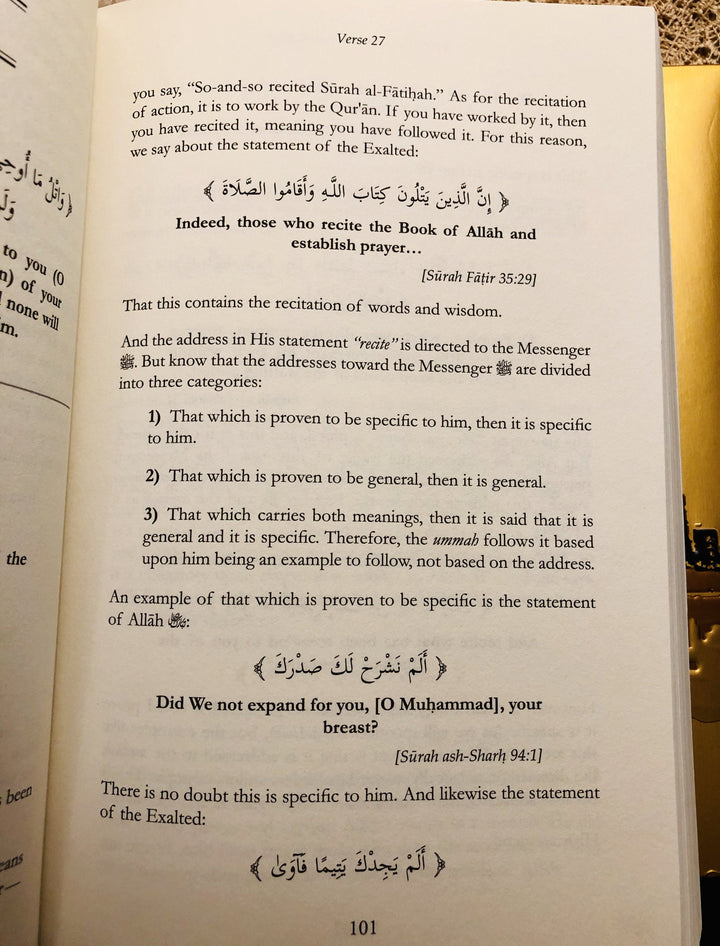 Verse 27
you say, “So-and-so recited Sūrah al-Fātiḥah.” As for the recitation
of action, it is to work by the Qur'ān. If you have worked by it, then
you have recited it, meaning you have followed it. For this reason,
we say about the statement of the Exalted:
﴿ إِنَّ الَّذِينَ يَتْلُونَ كِتَابَ اللَّهِ وَأَقَامُوا الصَّلَاةَ ﴾
Indeed, those who recite the Book of Allāh and
establish prayer…
[Sūrah Fāṭir 35:29]
That this contains the recitation of words and wisdom.
And the address in His statement “recite” is directed to the Messenger
ﷺ. But know that the addresses toward the Messenger ﷺ are divided
into three categories:
1) That which is proven to be specific to him, then it is specific
to him.
2) That which is proven to be general, then it is general.
3) That which carries both meanings, then it is said that it is
general and it is specific. Therefore, the ummah follows it based
upon him being an example to follow, not based on the address.
An example of that which is proven to be specific is the statement
of Allāh ﷻ:
﴿ أَلَمْ نَشْرَحْ لَكَ صَدْرَكَ ﴾
Did We not expand for you, [O Muḥammad], your
breast?
[Sūrah ash-Sharḥ 94:1]
There is no doubt this is specific to him. And likewise the statement
of the Exalted:
﴿ أَلَمْ يَجِدْكَ يَتِيمًا فَآوَىٰ ﴾
101
to you (O
of your
none will
the
been